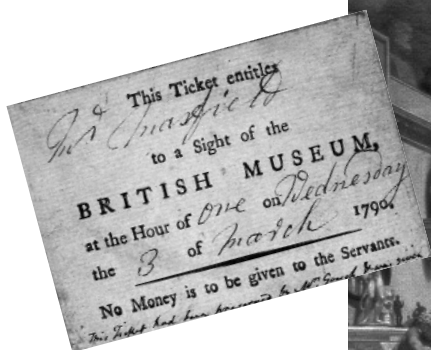 This Ticket entitles
to a Sight of the
BRITISH MUSEUM,
at the Hour of one on Wednesday
the 3 of March 1790.
No Money is to be given to the Servants.
This Ticket had been